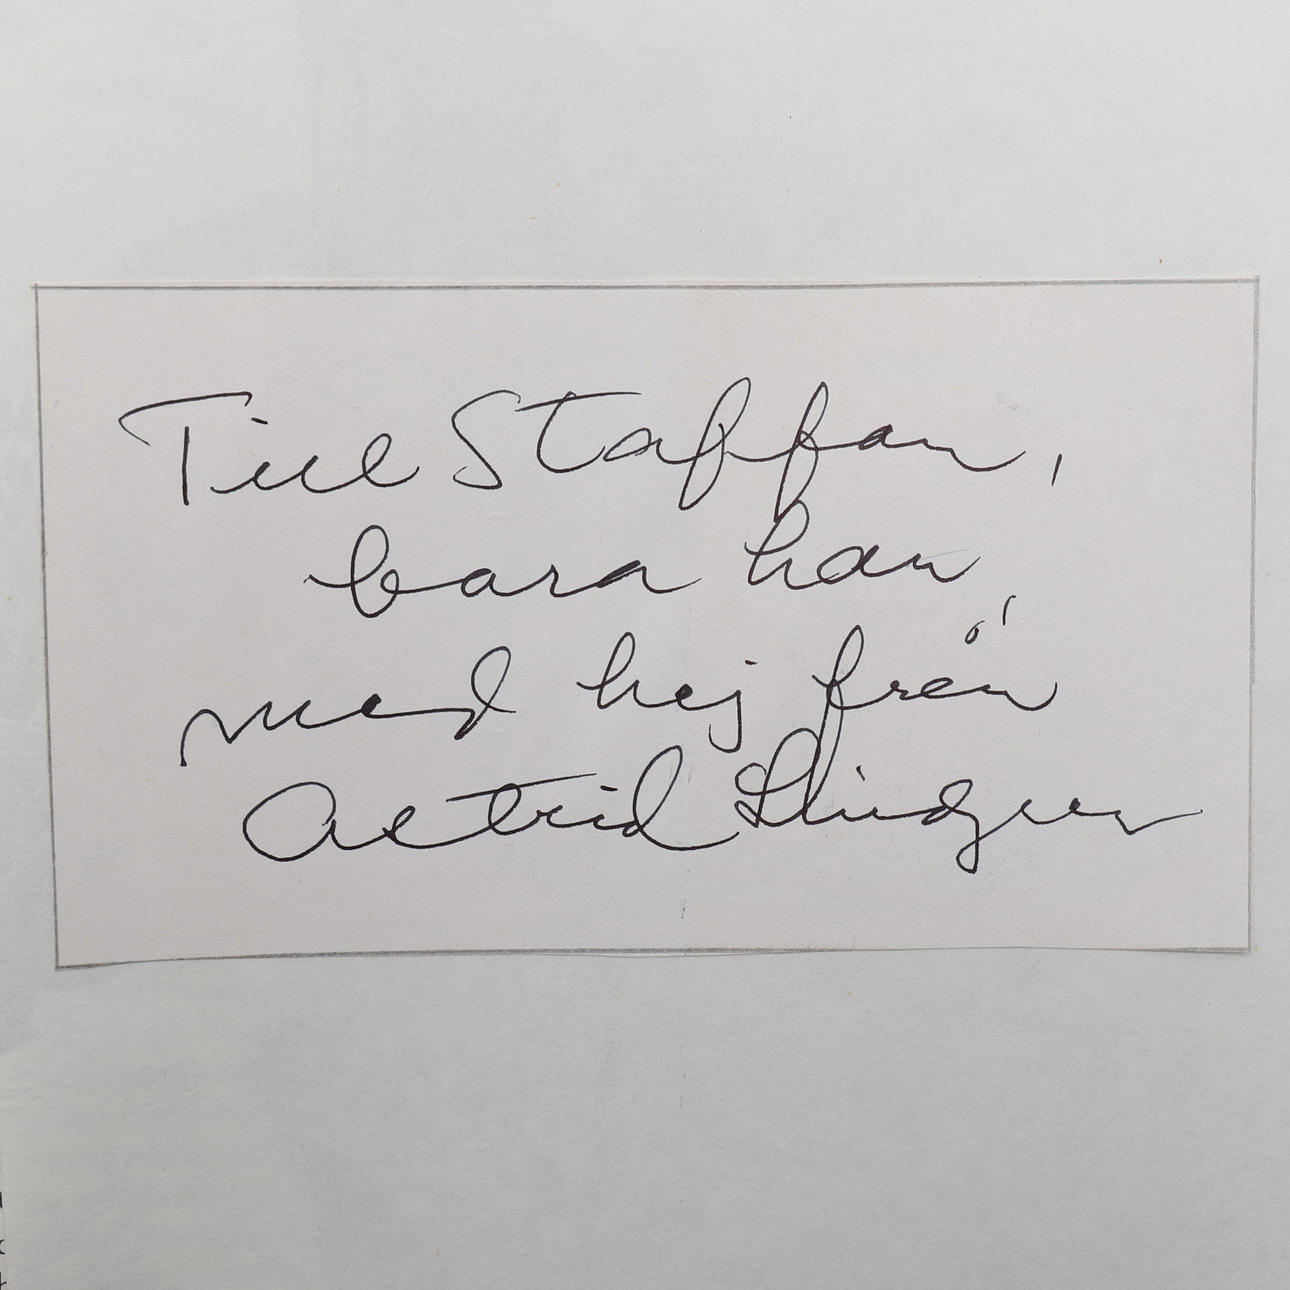 Till Staffan,
bara han,
med hej från
Astrid Lindgren